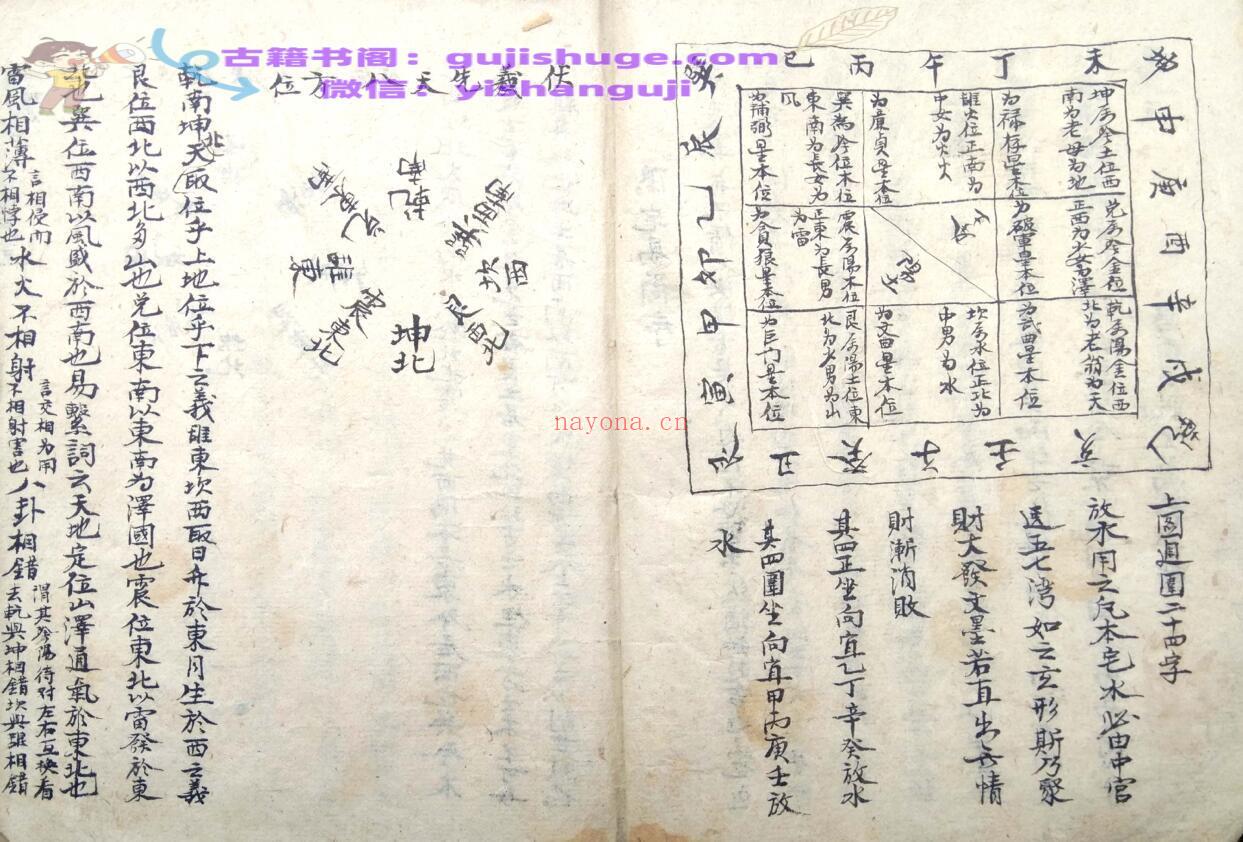 古籍书阁：gujishuge.com
微信：yishanguji
nayona.cn
巽 巳 丙 午 丁 未 坤
申 庚 酉 辛 戌 乾
亥 壬 子 癸 丑 艮
寅 甲 卯 乙 辰
坤属阴土位西
南为老母为地
为禄存星本位
離火位正南为
中女为火
为廉贞星本位
巽為阴位木位
東南为長女为
风
为辅弼星本位
兑属阴金位
正西为少女为澤
为破軍星本位
震属陽木位
正東为長男
为雷
为貪狼星本位
乾属陽金位西
北为老翁为天
为武曲星本位
坎属水位正北为
中男为水
为文曲星本位
艮属陽土位東
北为少男为山
为巨门星本位
上圖週圍二十四字
放水用之凡本宅水必由中宫
透五七湾如之玄形斯乃聚
財大發文墨若直出无情
財漸消敗
其四正坐向宜乙丁辛癸放水
其四圍坐向宜甲丙庚壬放
水
伏羲先天八卦方位
乾南
兑東南
離東
震東北
坤北
艮西北
坎西
巽西南
乾南坤北天取位乎上地位乎下之義離東坎西取日升於東月生於西之義
艮位西北以西北多山也兑位東南以東南为澤國也震位東北以雷發於東
北也巽位西南以風盛於西南也易繫詞云天地定位山澤通氣於東北也
雷風相薄言相侵而不相悖也水火不相射言交相为用不相射害也八卦相錯谓其陰陽待对左右互换看去乾與坤相錯坎與離相錯